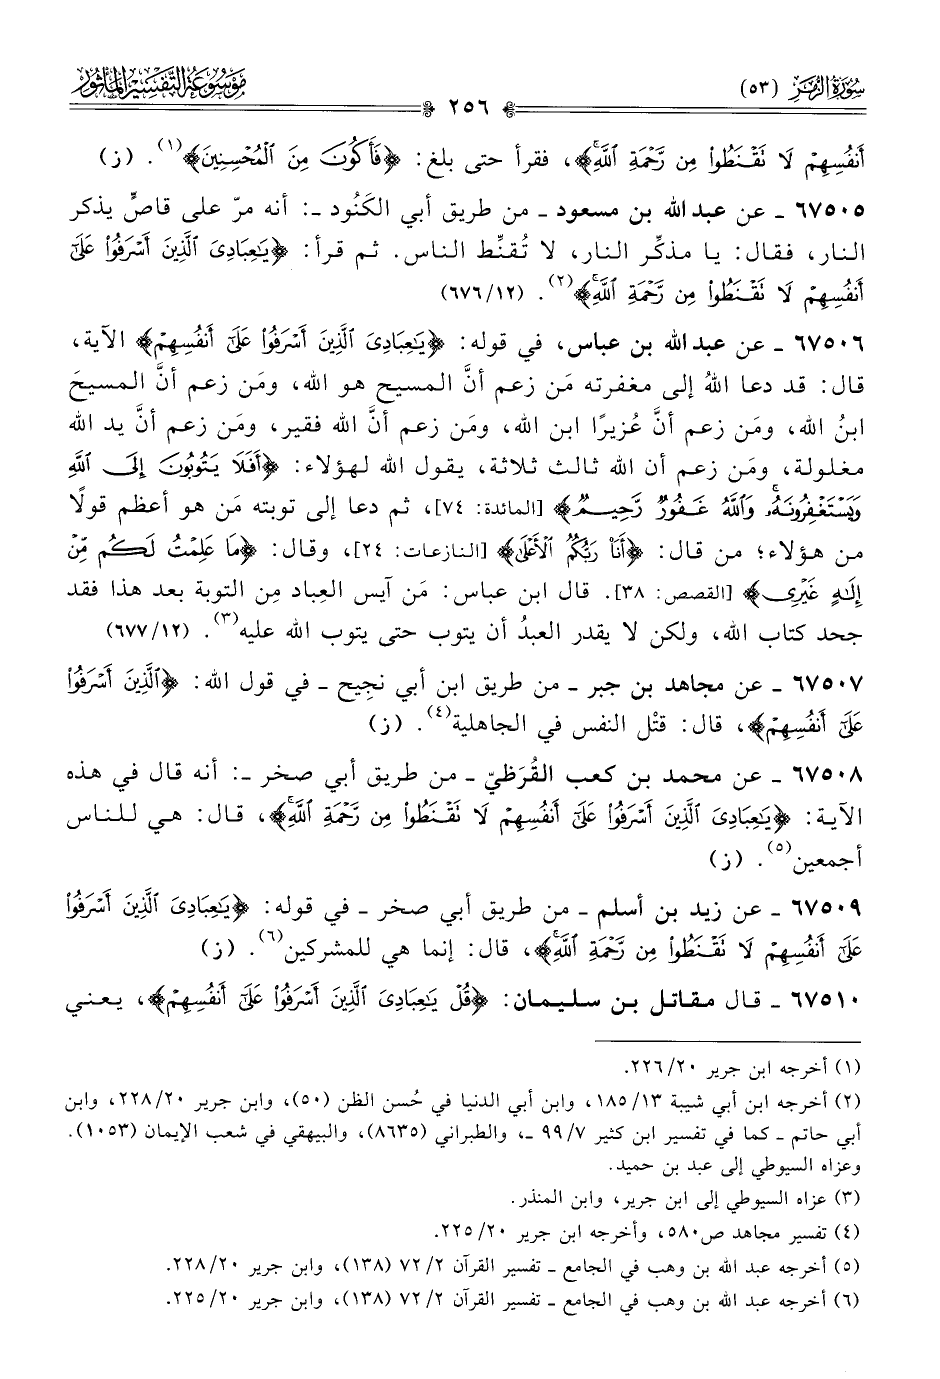 سُورَةُ الزُّمَرِ (٥٣)
٢٥٦
مَوْسُوعَة التَّفْسِير المَأثُور
أَنفُسِهِمْ لَا تَقْنَطُوا۟ مِن رَّحْمَةِ ٱللَّهِ﴾، فقرأ حتى بلغ: ﴿فَأَكُونَ مِنَ ٱلْمُحْسِنِينَ﴾(١). (ز)
٦٧٥٠٥ ـ عن عبد الله بن مسعود ـ من طريق أبي الكَنُود ـ: أنه مرّ على قاصٍّ يذكر
النار، فقال: يا مذكِّر النار، لا تُقنِّط الناس. ثم قرأ: ﴿يَـٰعِبَادِىَ ٱلَّذِينَ أَسْرَفُوا۟ عَلَىٰٓ
أَنفُسِهِمْ لَا تَقْنَطُوا۟ مِن رَّحْمَةِ ٱللَّهِۚ﴾(٢). (١٢/٦٧٦)
٦٧٥٠٦ ـ عن عبد الله بن عباس، في قوله: ﴿يَـٰعِبَادِىَ ٱلَّذِينَ أَسْرَفُوا۟ عَلَىٰٓ أَنفُسِهِمْ﴾ الآية،
قال: قد دعا اللهُ إلى مغفرته مَن زعم أنَّ المسيح هو الله، ومَن زعم أنَّ المسيحَ
ابنُ الله، ومَن زعم أنَّ عُزيرًا ابن الله، ومَن زعم أنَّ الله فقير، ومَن زعم أنَّ يد الله
مغلولة، ومَن زعم أن الله ثالث ثلاثة، يقول الله لهؤلاء: ﴿أَفَلَا يَتُوبُونَ إِلَى ٱللَّهِ
وَيَسْتَغْفِرُونَهُۥۚ وَٱللَّهُ غَفُورٌ رَّحِيمٌ﴾ [المائدة: ٧٤]، ثم دعا إلى توبته مَن هو أعظم قولًا
من هؤلاء؛ من قال: ﴿أَنَا۠ رَبُّكُمُ ٱلْأَعْلَىٰ﴾ [النازعات: ٢٤]، وقال: ﴿مَا عَلِمْتُ لَكُم مِّنْ
إِلَـٰهٍ غَيْرِى﴾ [القصص: ٣٨]. قال ابن عباس: مَن آيس العِباد مِن التوبة بعد هذا فقد
جحد كتاب الله، ولكن لا يقدر العبدُ أن يتوب حتى يتوب الله عليه(٣). (١٢/٦٧٧)
٦٧٥٠٧ ـ عن مجاهد بن جبر ـ من طريق ابن أبي نجيح ـ في قول الله: ﴿ٱلَّذِينَ أَسْرَفُوا۟
عَلَىٰٓ أَنفُسِهِمْ﴾، قال: قتْل النفس في الجاهلية(٤). (ز)
٦٧٥٠٨ ـ عن محمد بن كعب القُرَظيّ ـ من طريق أبي صخر ـ: أنه قال في هذه
الآية: ﴿يَـٰعِبَادِىَ ٱلَّذِينَ أَسْرَفُوا۟ عَلَىٰٓ أَنفُسِهِمْ لَا تَقْنَطُوا۟ مِن رَّحْمَةِ ٱللَّهِۚ﴾، قال: هي للناس
أجمعين(٥). (ز)
٦٧٥٠٩ ـ عن زيد بن أسلم ـ من طريق أبي صخر ـ في قوله: ﴿يَـٰعِبَادِىَ ٱلَّذِينَ أَسْرَفُوا۟
عَلَىٰٓ أَنفُسِهِمْ لَا تَقْنَطُوا۟ مِن رَّحْمَةِ ٱللَّهِۚ﴾، قال: إنما هي للمشركين(٦). (ز)
٦٧٥١٠ ـ قال مقاتل بن سليمان: ﴿قُلْ يَـٰعِبَادِىَ ٱلَّذِينَ أَسْرَفُوا۟ عَلَىٰٓ أَنفُسِهِمْ﴾، يعني
(١) أخرجه ابن جرير ٢٠/٢٢٦.
(٢) أخرجه ابن أبي شيبة ١٣/١٨٥، وابن أبي الدنيا في حُسن الظن (٥٠)، وابن جرير ٢٠/٢٢٨، وابن
أبي حاتم ـ كما في تفسير ابن كثير ٧/٩٩ ـ، والطبراني (٨٦٣٥)، والبيهقي في شعب الإيمان (١٠٥٣).
وعزاه السيوطي إلى عبد بن حميد.
(٣) عزاه السيوطي إلى ابن جرير، وابن المنذر.
(٤) تفسير مجاهد ص٥٨٠، وأخرجه ابن جرير ٢٠/٢٢٥.
(٥) أخرجه عبد الله بن وهب في الجامع ـ تفسير القرآن ٢/٧٢ (١٣٨)، وابن جرير ٢٠/٢٢٨.
(٦) أخرجه عبد الله بن وهب في الجامع ـ تفسير القرآن ٢/٧٢ (١٣٨)، وابن جرير ٢٠/٢٢٥.